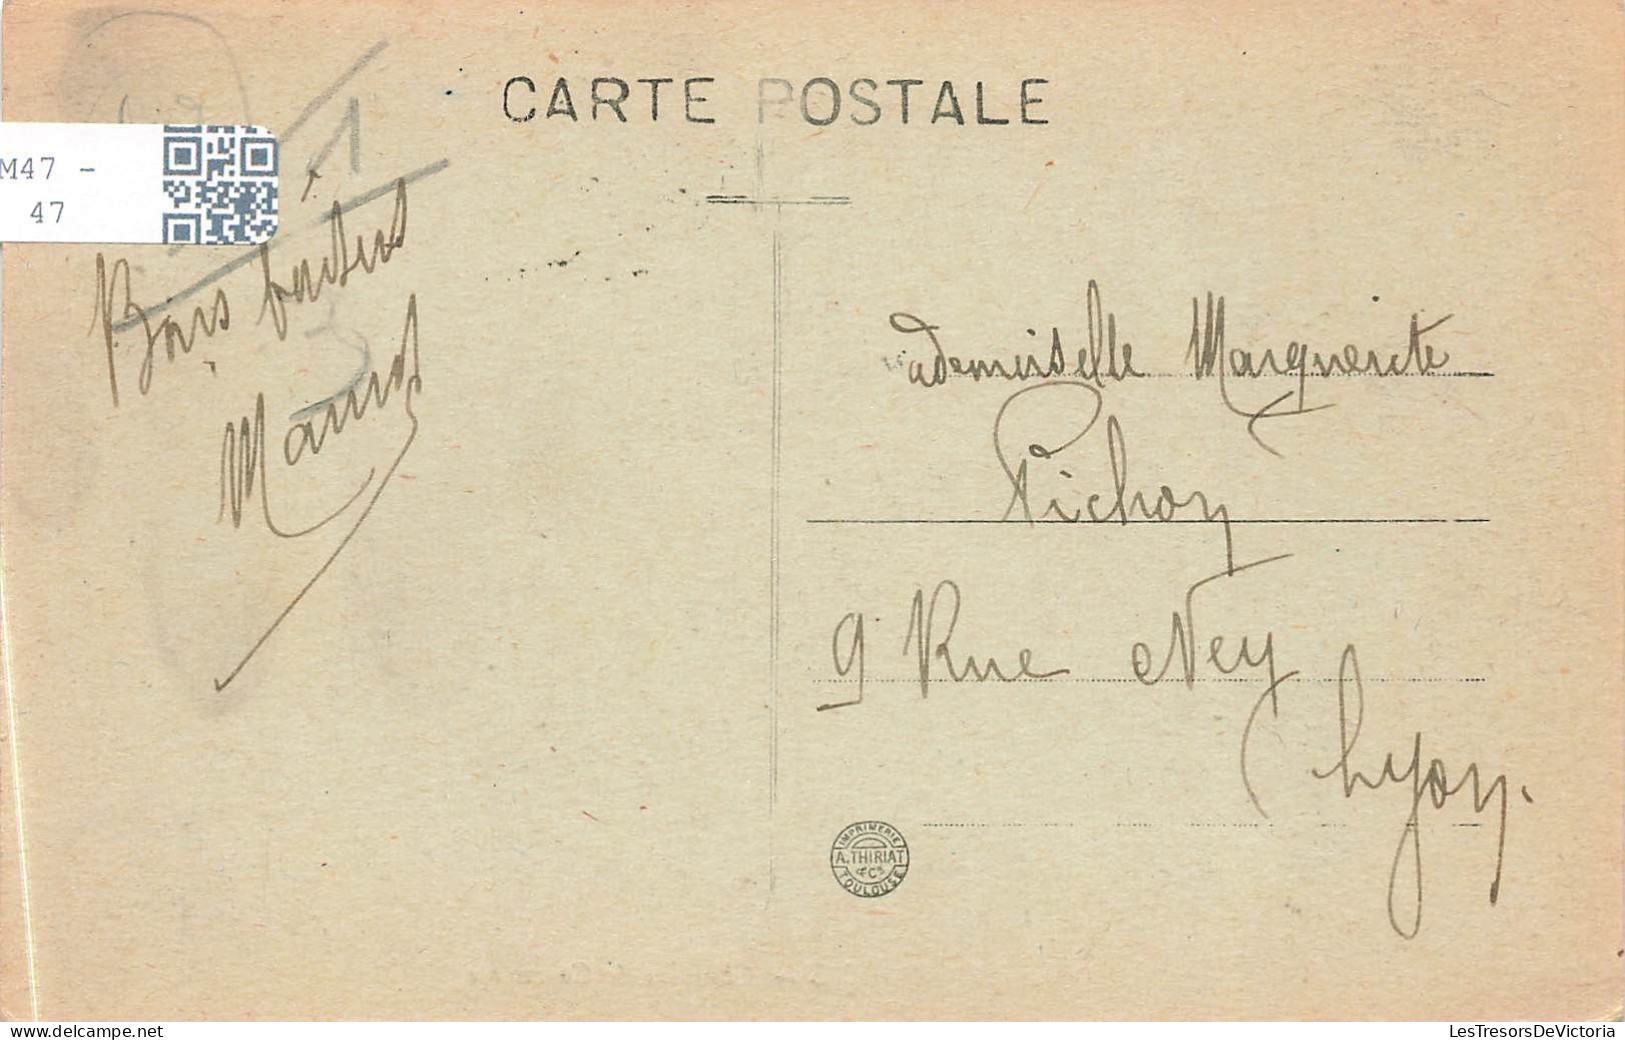 CARTE POSTALE
M47 -
47
1
Bons baisers
3
ademoiselle Marguerite
Pichon
9 Rue Ney
Lyon.
IMPRIMERIE
A. THIRIAT
& Cie
TOULOUSE
delcampe.net
LesTresorsDeVictoria